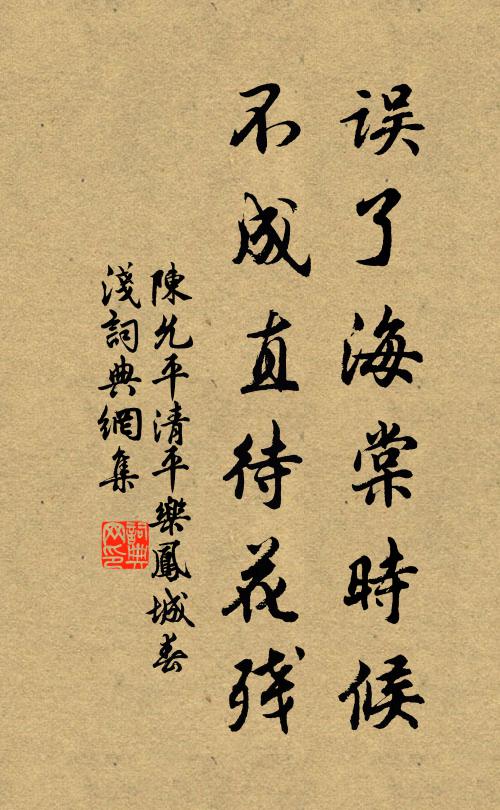 误了海棠時候
不成直待花残
陳允平清平樂鳳城春
淺詞典網集
詞典网印